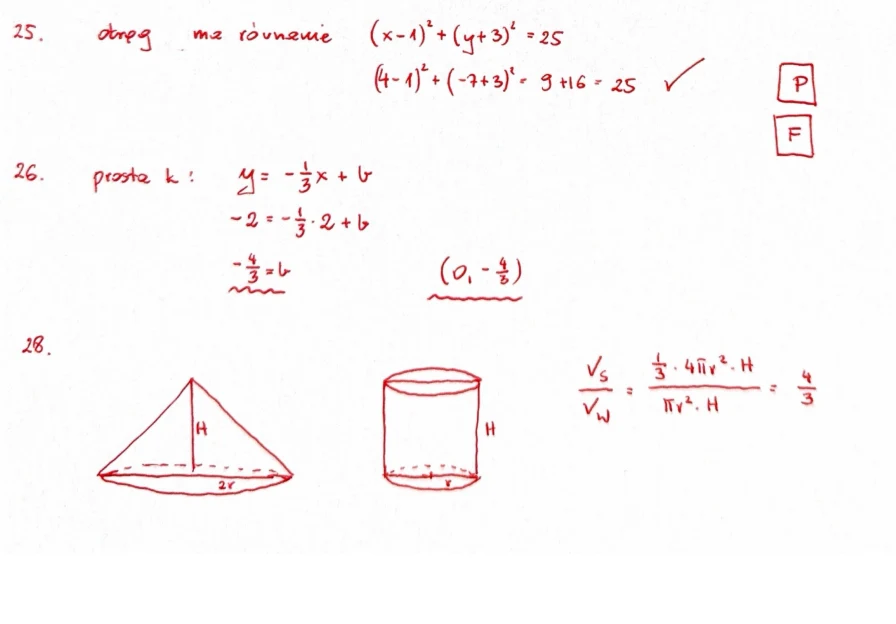 25. okrąg ma równanie (x-1)² + (y+3)² = 25
(4-1)² + (-7+3)² = 9 + 16 = 25 ✓
P
F
26. prosta k: y = -1/3 x + b
-2 = -1/3 · 2 + b
-4/3 = b (0, -4/3)
28.
H 2r
H r
Vs/Vw = (1/3 · 4πr² · H)/(πr² · H) = 4/3